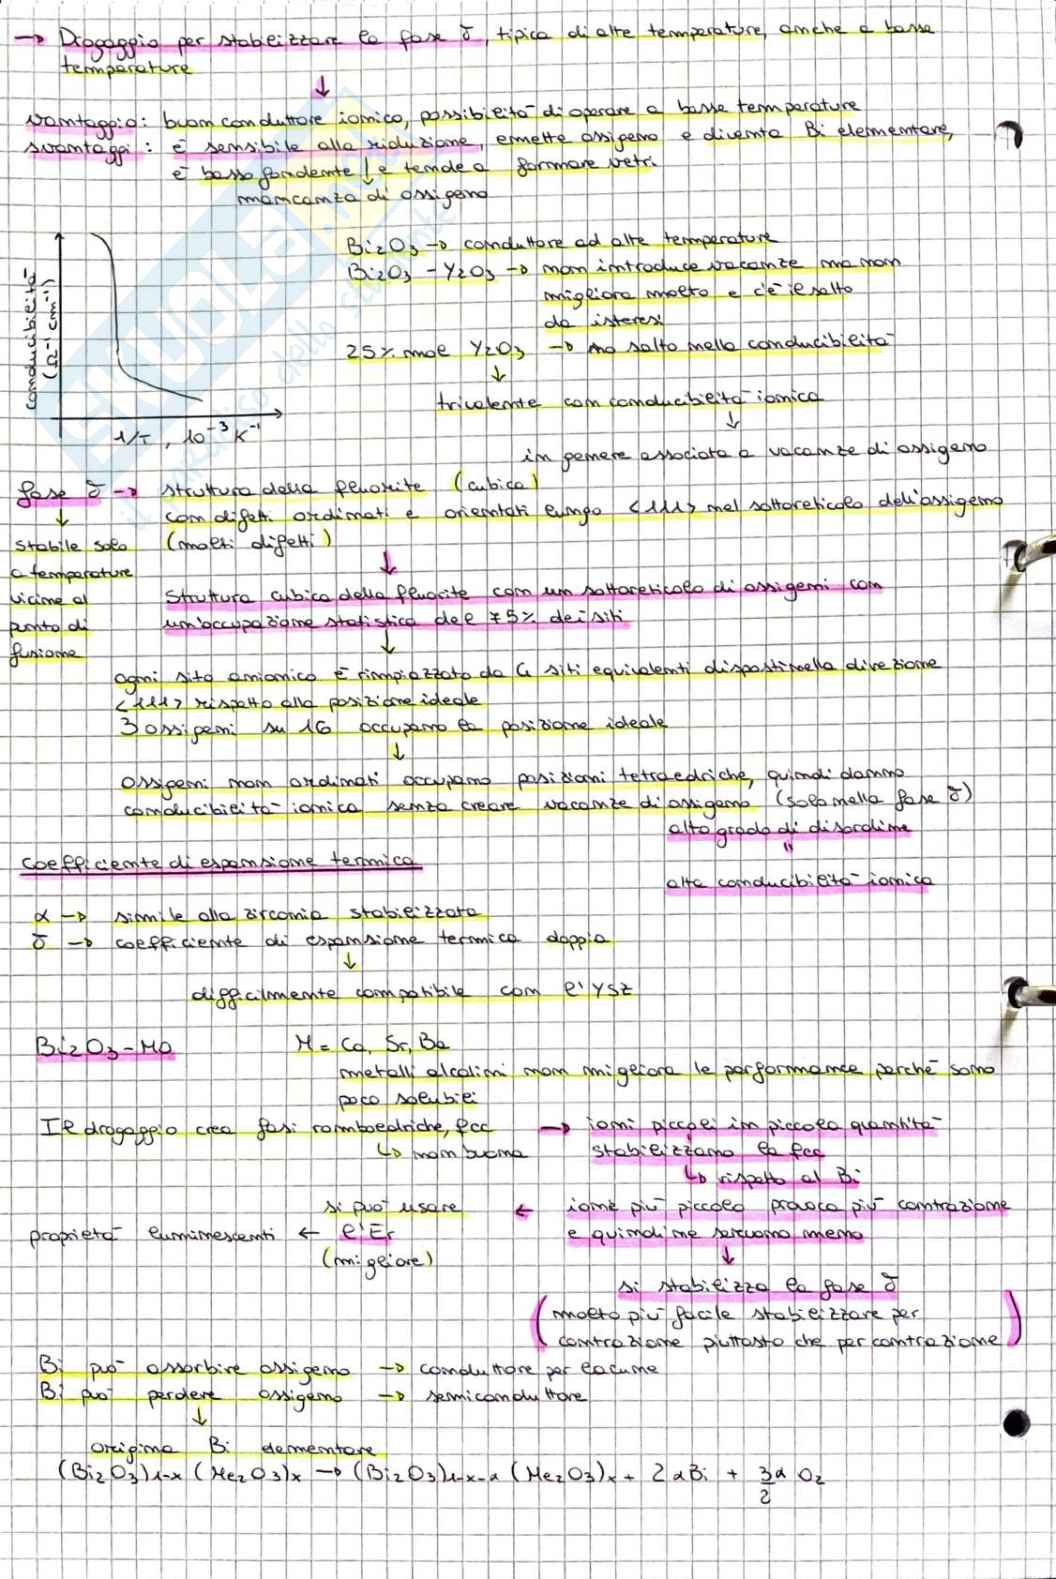 → Drogaggio per stabilizzare la fase δ, tipica di alte temperature, anche a basse
temperature
↓
vantaggio: buon conduttore ionico, possibilità di operare a basse temperature
svantaggi: è sensibile alla riduzione, emette ossigeno e diventa Bi elementare,
è basso fondente ↓ e tende a formare vetri
mancanza di ossigeno
conducibilità
(Ω⁻¹ cm⁻¹)
1/T, 10⁻³ K⁻¹
Bi₂O₃ → conduttore ad alte temperature
Bi₂O₃ - Y₂O₃ → non introduce vacanze ma non
migliora molto e c'è il salto
da isteresi
25% mol Y₂O₃ → no salto nella conducibilità
↓
trivalente con conducibilità ionica
↓
in genere associata a vacanze di ossigeno
fase δ → struttura della fluorite (cubica)
con difetti ordinati e orientati lungo <111> nel sottoreticolo dell'ossigeno
(molti difetti)
↓
stabile solo
a temperature
vicine al
punto di
fusione
↓
Struttura cubica della fluorite con un sottoreticolo di ossigeni con
un'occupazione statistica del 75% dei siti
↓
ogni sito anionico è rimpiazzato da 4 siti equivalenti disposti nella direzione
<111> rispetto alla posizione ideale
3 ossigeni su 16 occupano la posizione ideale
↓
Ossigeni non ordinati occupano posizioni tetraedriche, quindi danno
conducibilità ionica senza creare vacanze di ossigeno (solo nella fase δ)
alto grado di disordine
"
alta conducibilità ionica
coefficiente di espansione termica
α → simile alla zirconia stabilizzata
δ → coefficiente di espansione termica doppia
↓
difficilmente compatibile con l'YSZ
Bi₂O₃ - MO
M = Ca, Sr, Ba
metalli alcalini non migliora le performance perché sono
poco solubili
Il drogaggio crea fasi romboedriche, fcc
↳ non buona
→ ioni piccoli in piccola quantità
stabilizzano la fcc
↳ rispetto al Bi
← ione più piccolo provoca più contrazione
e quindi ne servono meno
↓
si può usare
proprietà luminescenti ← l'Er
(migliore)
si stabilizza la fase δ
(molto più facile stabilizzare per
contrazione piuttosto che per contrazione)
Bi può assorbire ossigeno → conduttore per lacune
Bi può perdere ossigeno → semiconduttore
↓
origina Bi elementare
(Bi₂O₃)₁₋ₓ (Me₂O₃)ₓ → (Bi₂O₃)₁₋ₓ₋α (Me₂O₃)ₓ + 2αBi + 3α/2 O₂